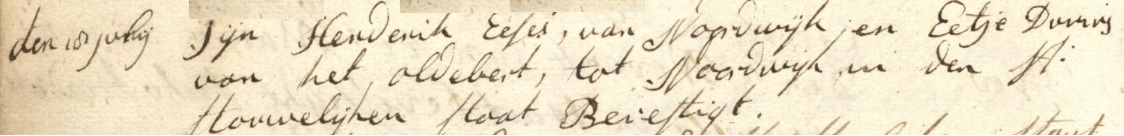 den 18 julij Sijn Henderik Eeses, van Noordwijk, en Eetje Duurts
van het oldebert, tot Noordwijk in den H:
Houwelijken staat Bevestigt.